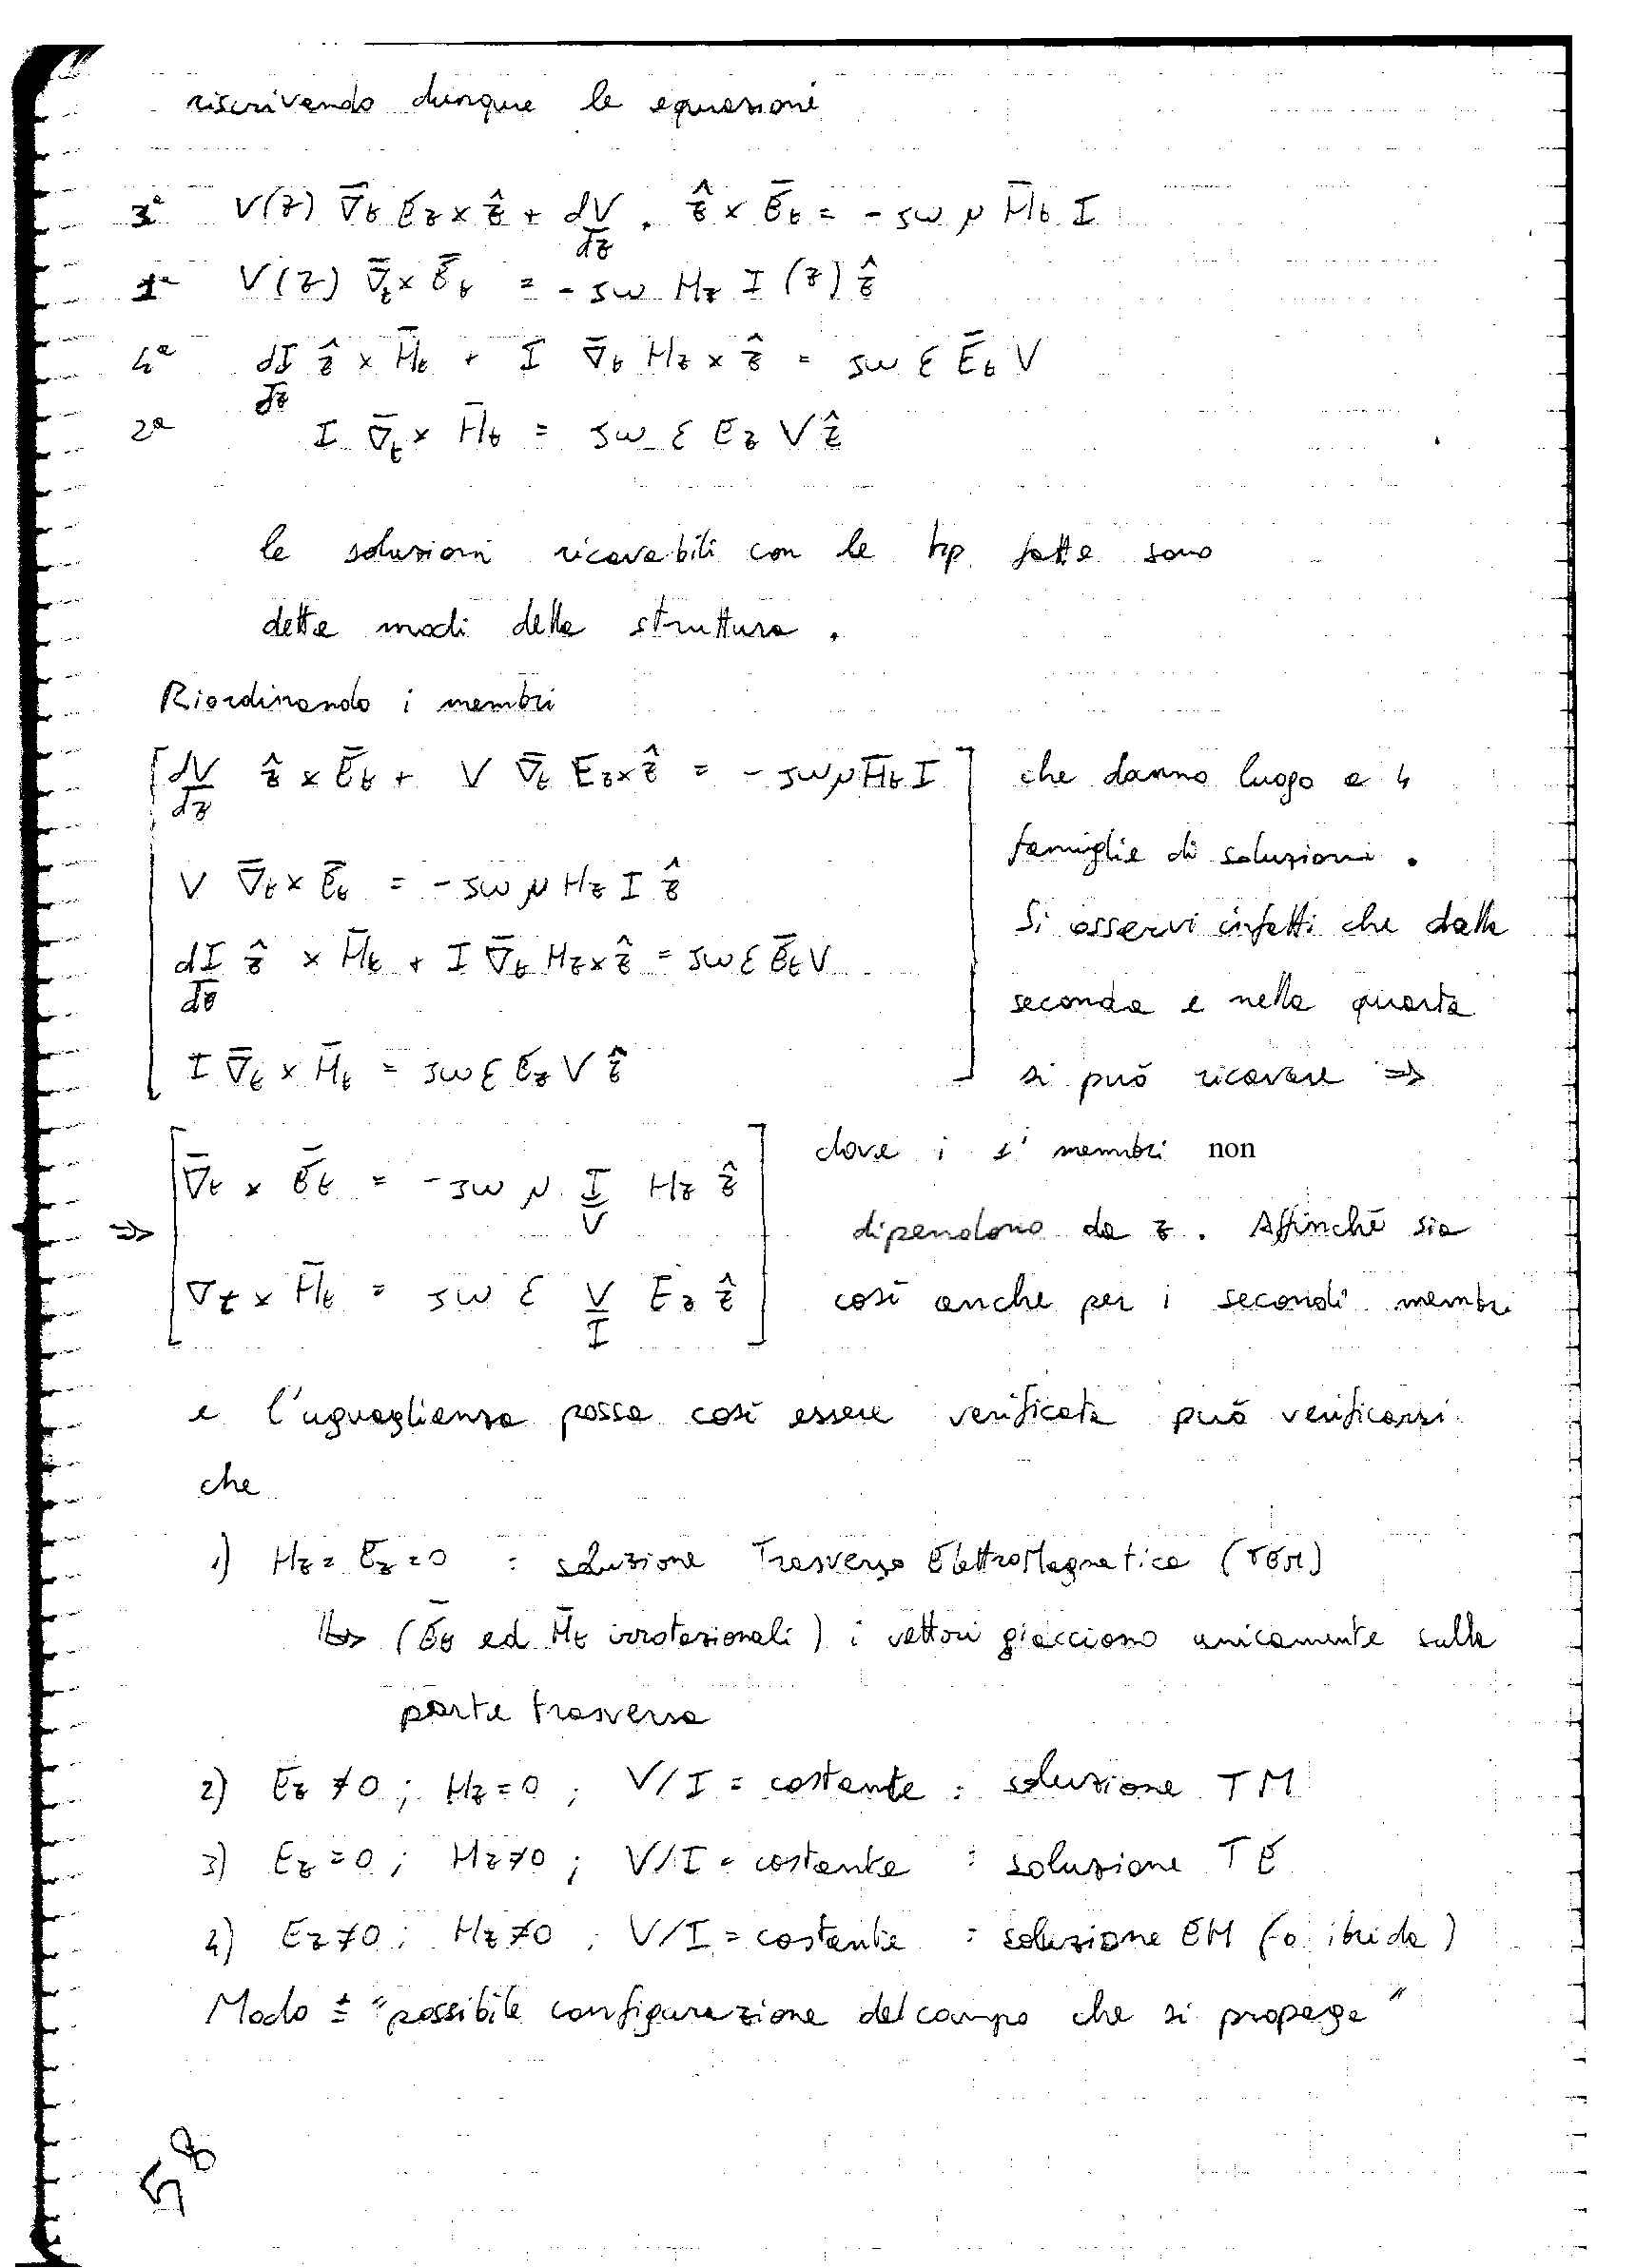 riscrivendo dunque le equazioni
3ª V(z) ∇̄t Ez × ẑ + dV/dz · ẑ × Ēt = - jω μ H̄t I
1ª V(z) ∇̄t × Ēt = - jω Hz I (z) ẑ
4ª dI/dz ẑ × H̄t + I ∇̄t Hz × ẑ = jω ε Ēt V
2ª I ∇̄t × H̄t = jω ε Ez V ẑ
le soluzioni ricavabili con le hp fatte sono
dette modi della struttura.
Riordinando i membri
dV/dz ẑ × Ēt + V ∇̄t Ez × ẑ = - jωμ H̄t I che danno luogo a 4
famiglie di soluzioni.
V ∇̄t × Ēt = - jω μ Hz I ẑ
Si osservi infatti che dalla
dI/dz ẑ × H̄t + I ∇̄t Hz × ẑ = jω ε Ēt V
seconda e nella quarta
I ∇̄t × H̄t = jω ε Ez V ẑ si può ricavare ⇒
∇̄t × Ēt = - jω μ I/V Hz ẑ dove i 1' membri non
⇒ dipendono da z. Affinché sia
∇t × H̄t = jω ε V/I Ez ẑ così anche per i secondi membri
e l'uguaglianza possa così essere verificata può verificarsi
che
1) Hz = Ez = 0 : soluzione Trasverso ElettroMagnetica (TEM)
↳ (Ēt ed H̄t irrotazionali) i vettori giacciono unicamente sulla
parte trasversa
2) Ez ≠ 0 ; Hz = 0 ; V/I = costante : soluzione TM
3) Ez = 0 ; Hz ≠ 0 ; V/I = costante : soluzione TE
4) Ez ≠ 0 ; Hz ≠ 0 ; V/I = costante : soluzione EH (o ibrida)
Modo ≜ "possibile configurazione del campo che si propaga"
58